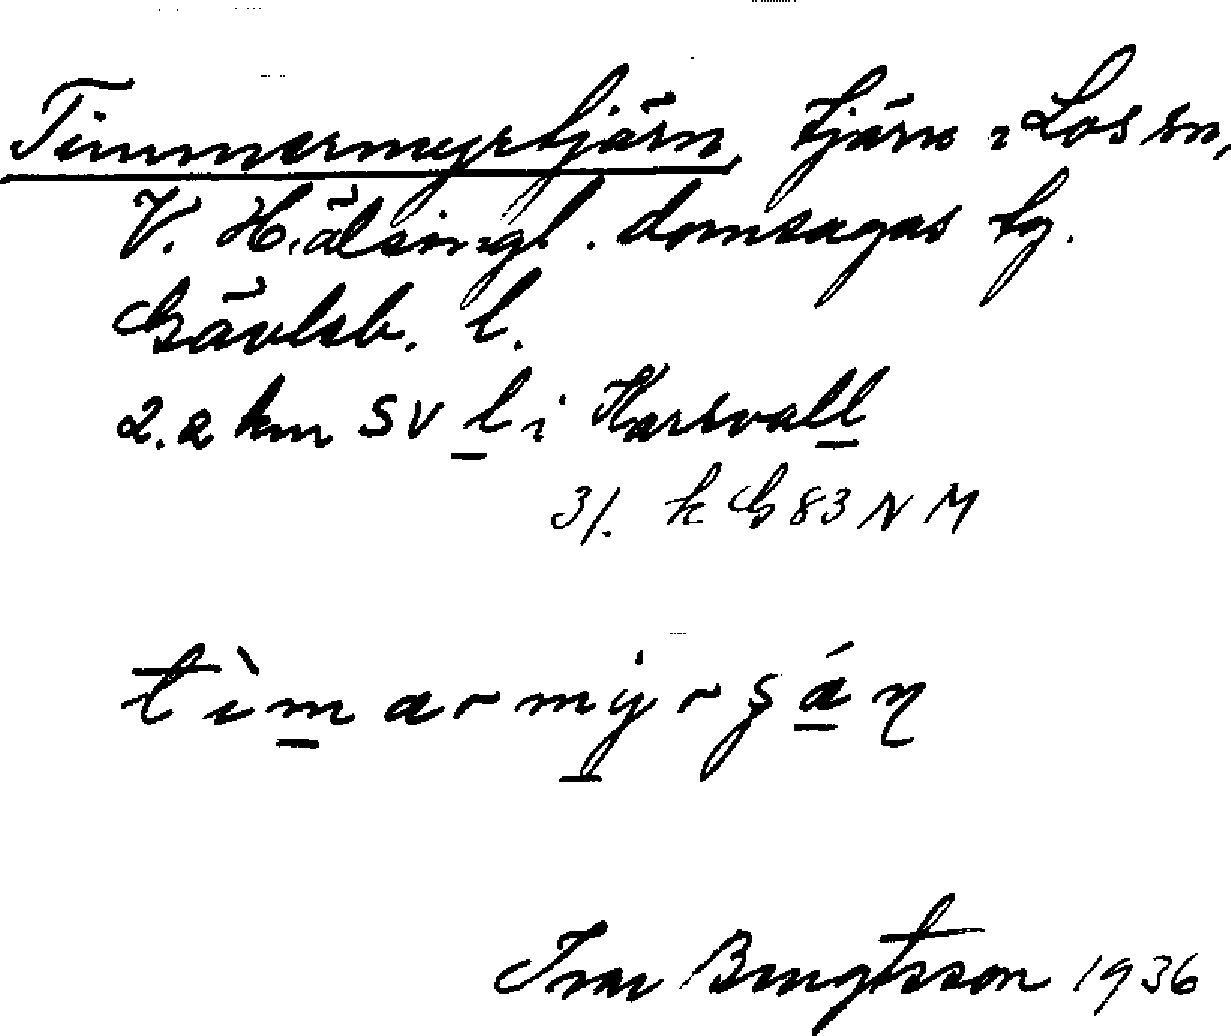 Timmermyrtjärn, tjärn i Los sn,
V. Hälsingl. domsagas tg.
Gävleb. l.
2.2 km SV l i Karsvall
3/. k G 83 N M
tìmarmýrşán̡
Ivar Bengtsson 1936